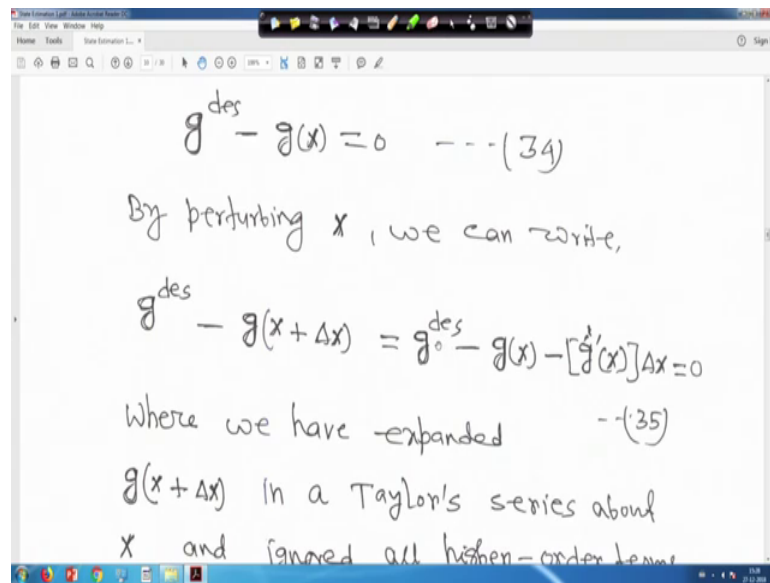 State Estimation 1.pdf - Adobe Acrobat Reader DC
File Edit View Window Help
Home Tools State Estimation 1... × Sign
g^des - g(x) = 0 ---(34)
By perturbing x, we can write,
g^des - g(x + Δx) = g^des - g(x) - [g'(x)]Δx = 0
--(35)
Where we have expanded
g(x + Δx) in a Taylor's series about
x and ignored all higher-order terms